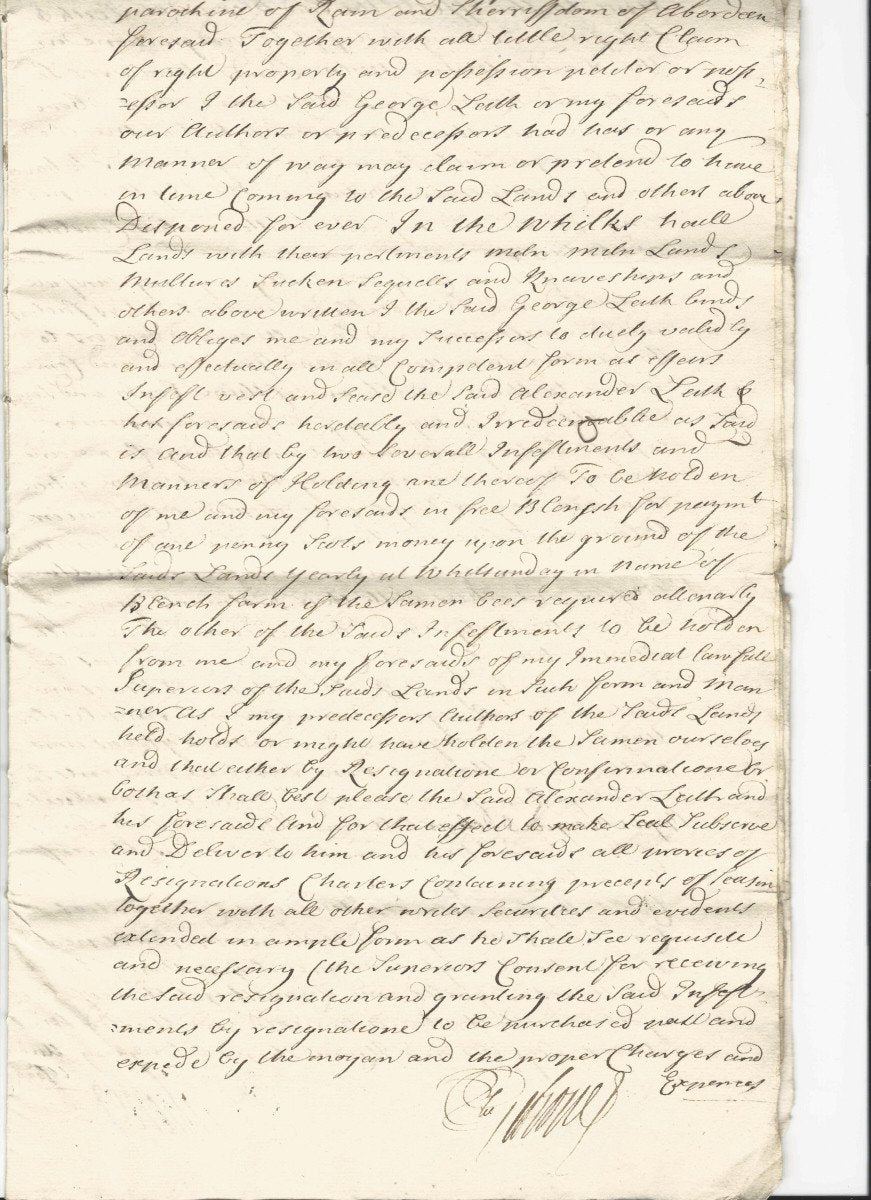 parochine of Rain and Sherriffdom of Aberdeen
foresaid Together with all tittle right Claim
of right property and possession petitor or poss=
=essor I the Said George Leith or my foresaids
our Authors or predecessors had has or any
Manner of way may claim or pretend to have
in time Coming to the Said Lands and others above
Disponed for ever In the Whilks haill
Lands with their pertinents miln miln Lands
Multures Sucken Sequells and Knaveships and
others above written I the Said George Leith binds
and Obleges me and my Successors to duely validly
and effectually in all Competent form as effeirs
Infeft vest and Sease the Said Alexander Leith &
his foresaids heretably and Irredeemablie as Said
is And that by two Severall Infeftments and
Manners of Holding ane thereof To be holden
of me and my foresaids in free Blensh for paymt
of ane penny Scots money upon the ground of the
Saids Lands yearly at Whitsunday in name of
Blench farm if the Samen bees required allenarly
The other of the Saids Infeftments to be holden
from me and my foresaids of my Immediat lawfull
Superiors of the Saids Lands in Such form and Man
=ner as I my predecessors Authors of the Saids Lands
held holds or might have holden the Samen ourselves
and that either by Resignatione or Confirmatione or
both as Shall best please the Said Alexander Leith and
his foresaids And for that effect to make Seal Subscrive
and Deliver to him and his foresaids all procries of
Resignations Charters Containing precepts of Seasin
together with all other writes Securities and evidents
extended in ample form as he Shall See requisite
and necessary (the Superiors Consent for receiving
the Said resignation and granting the Said Infeft=
=ments by resignatione to be purchased past and
expede by the moyan and the proper Charges and
Expences